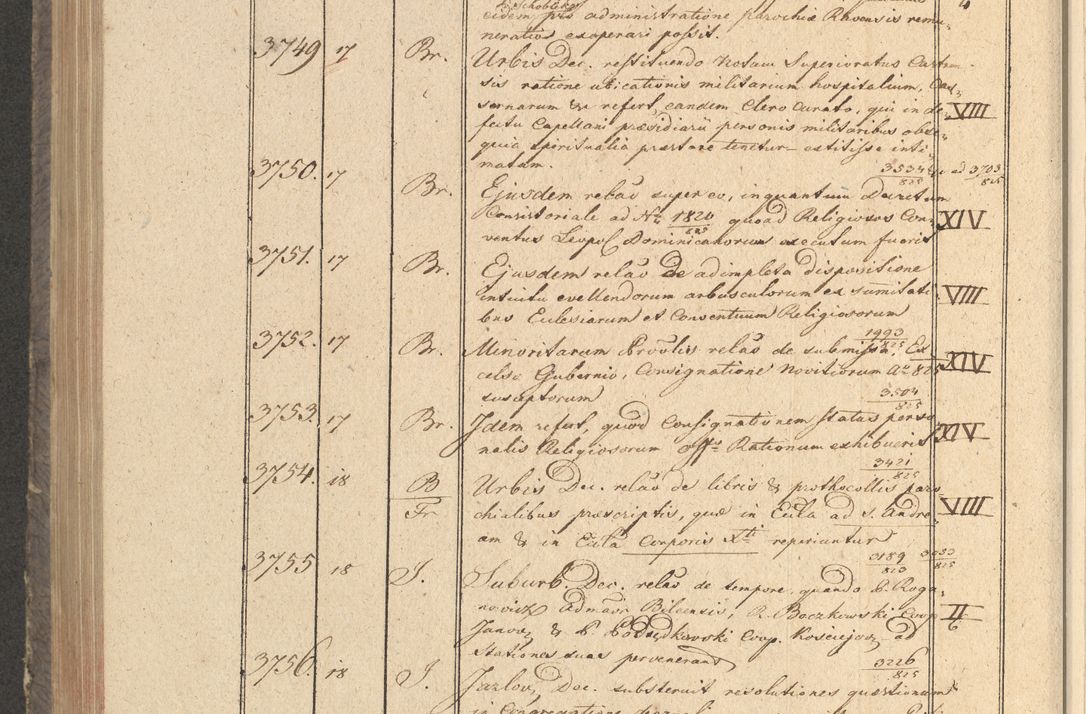 eidem pro administratione parochiæ Rhoensis remu-
neratio exoperari possit.
3749 17 Br. Urbis Dec. restituendo Notam Superioratus Castren-
sis ratione ubicationis militarium hospitalium, Cas-
sarnarum & refert, eandem Clero Curato, qui in de-
fectu Capellani præsidiarii personis militaribus obse-
quia spiritualia præstare tenetur extitisse inti-
matam. VIII
3750. 17 Br. Ejusdem relao super eo, inquantum Decretum 3534/825 ad 3703/825
Consistoriale ad Nr. 1820/825 quoad Religiosos Con-
ventus Leopol Dominicanorum executum fuerit XIV
3751. 17 Br. Ejusdem relao de adimpleta dispositione
intuitu evellendorum arbusculorum ex summitati
bus Ecclesiarum et Conventuum Religiosorum VIII
3752. 17 Br. Minoritarum Provlis relao de submissa, Ex 1993/825
celso Gubernio, Consignatione Novitiorum Ao 825
susceptorum XIV
3753. 17 Br. Idem refert, quod Consignationem status perso 3504/825
nalis Religiosorum offo Rationum exhibuerit XIV
3754. 18 B/Fr Urbis Dec. relao de libris & prothocollis paro 3421/825
chialibus præscriptis, quæ in Ecclā ad S. Andre-
am & in Ecclā Corporis Xti reperiuntur VIII
3755 18 J. Suburb Dec. relao de tempore quando P. Roga- 3189/825 3053/825
nowicz Admaor Bilcensis, R. Boczkowski Coop.
Janov, & P. Coop. Kosciejov, ad
stationes suas pervenerant II
3756. 18 J. Jazlov, Dec. substernit resolutiones quæstionum 3226/825
in Congregatione